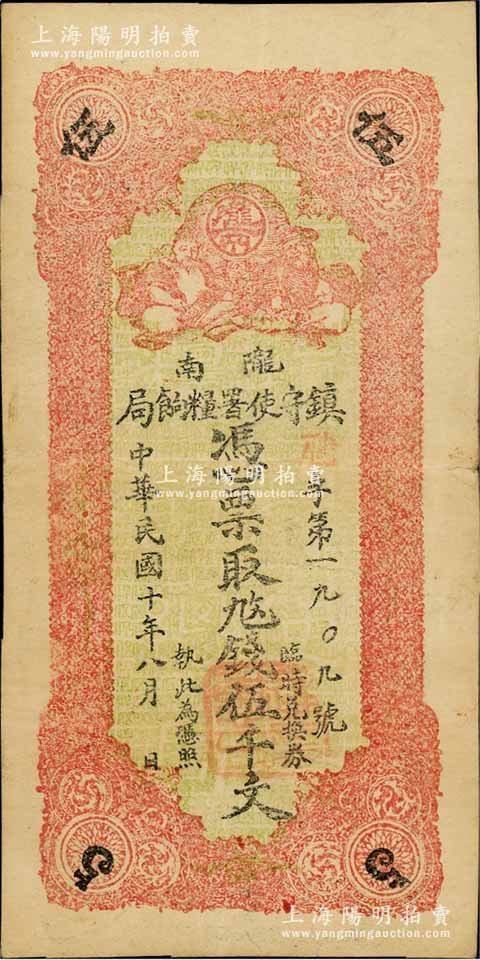 上海陽明拍賣
www.yangmingauction.com
伍
伍
隴南
鎮守使署糧餉局
字第一九〇九號
臨時兌換券
憑票取
錢伍千文
執此為憑照
中華民國十年八月 日
上海陽明拍賣
www.yangmingauction.com
5
5
上海陽明拍賣
www.yangmingauction.com